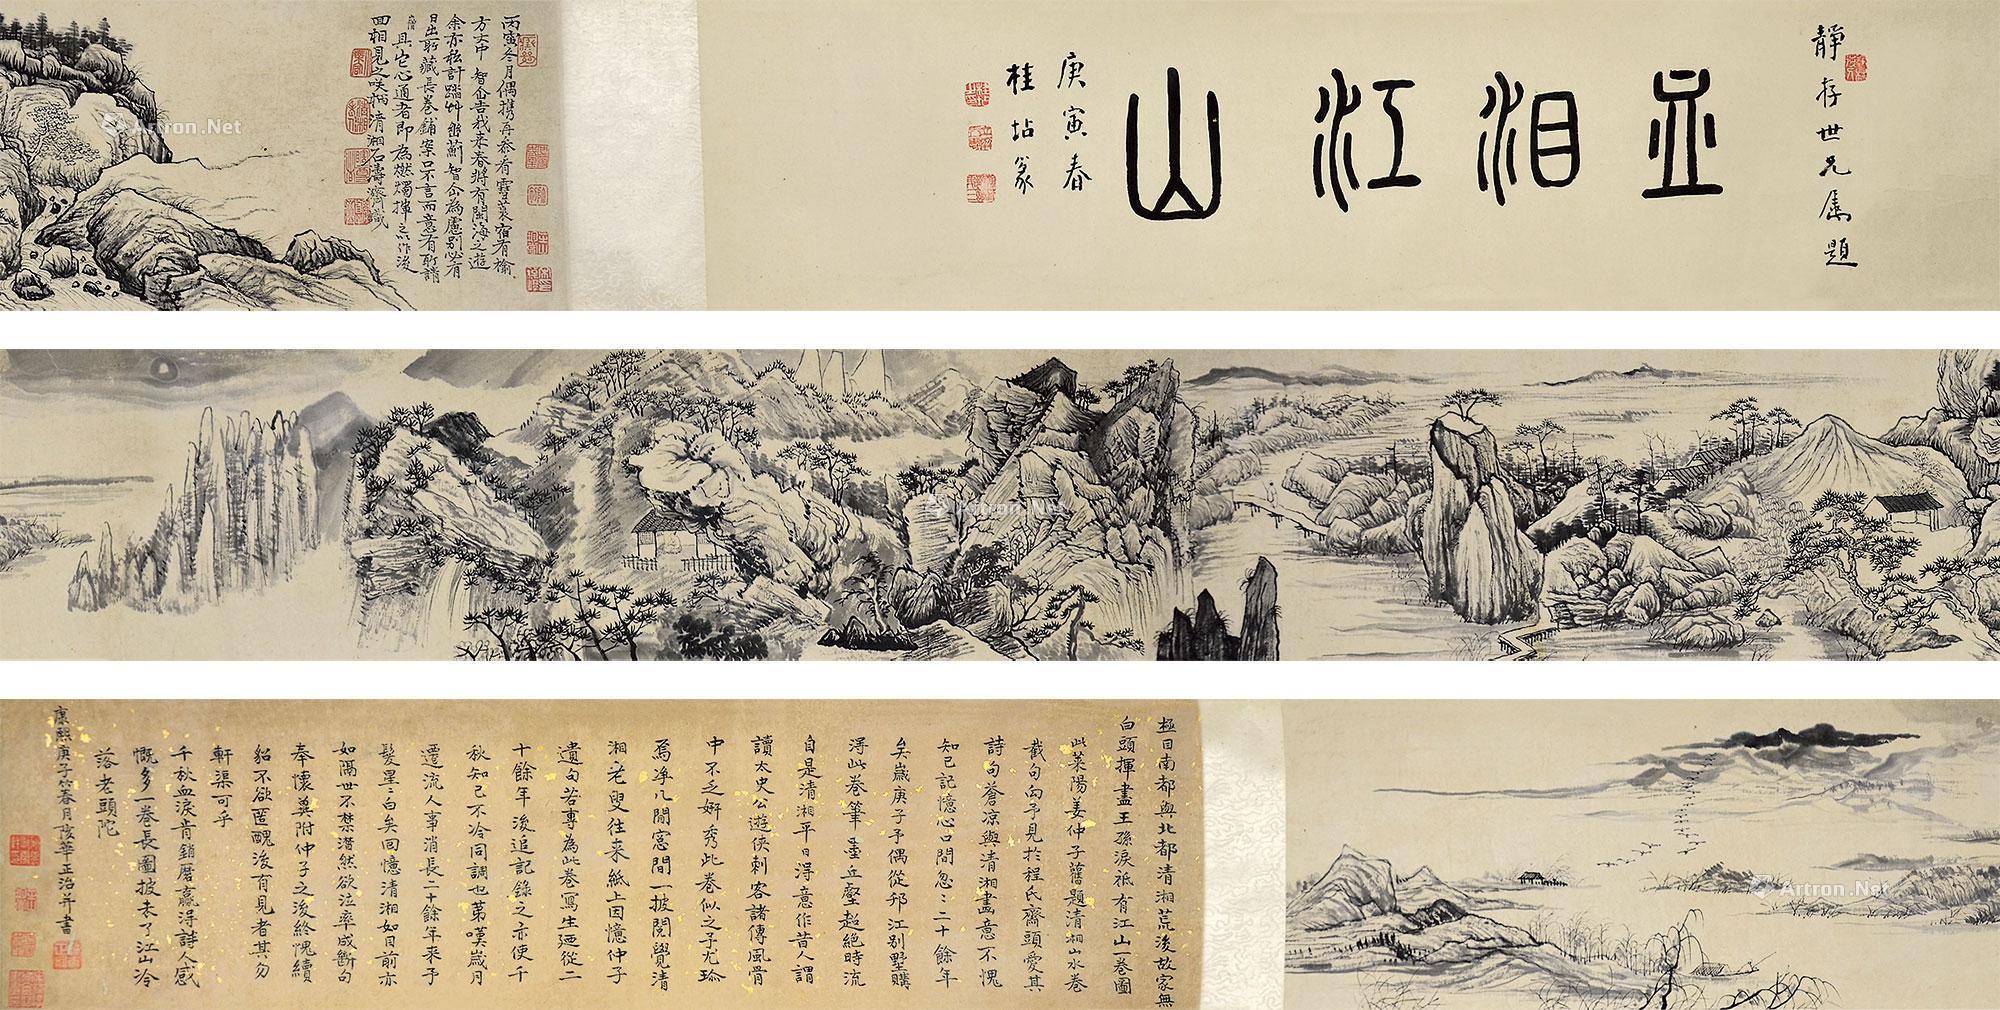 靜存世兄屬題
江山
庚寅春
桂坫篆
丙寅冬月偶携再泰看雲莫宿看榆
方丈中智企告我来春將有閩海之遊
余亦私計踏艸巒薊智企為慮別必有
日出所藏長卷鋪案只不言而意有所請
具它心通者即為燃燭揮之作後
回相見之咲柄清湘石濤濟識
極目南都與北都清湘荒後故家無
白頭揮盡王孫淚祗有江山一卷圖
此萊陽姜仲子舊題清湘山水卷
截句向予見於程氏齋頭愛其
詩句蒼凉與清湘畫意不愧
知己記憶心口間忽〻二十餘年
矣歲庚子予偶從邗江別墅購
淂此卷筆墨丘壑超絕時流
自是清湘平日得意作昔人謂
讀太史公遊俠刺客諸傳風骨
中不乏妍秀此卷似之予尤珎
焉净几閒窓間一披閱覺清
湘老叟往来紙上因憶仲子
遺句若專為此卷寫生廼從二
十餘年浚追記錄之亦使千
秋知己不冷同調也苐嘆歲月
遷流人事消長二十餘年来予
髮星〻白矣回憶清湘如目前亦
如隔世不禁潸然欲泣率成斷句
奉懷冀附仲子之浚終愧續
貂不欲匿醜浚有見者其勿
軒渠可乎
千秋血淚肯銷磨贏得詩人感
慨多一卷長圖披未了江山冷
落老頭陀
康熙庚子春月 華正治并書
Artron.Net
Artron.Net
Artron.Net